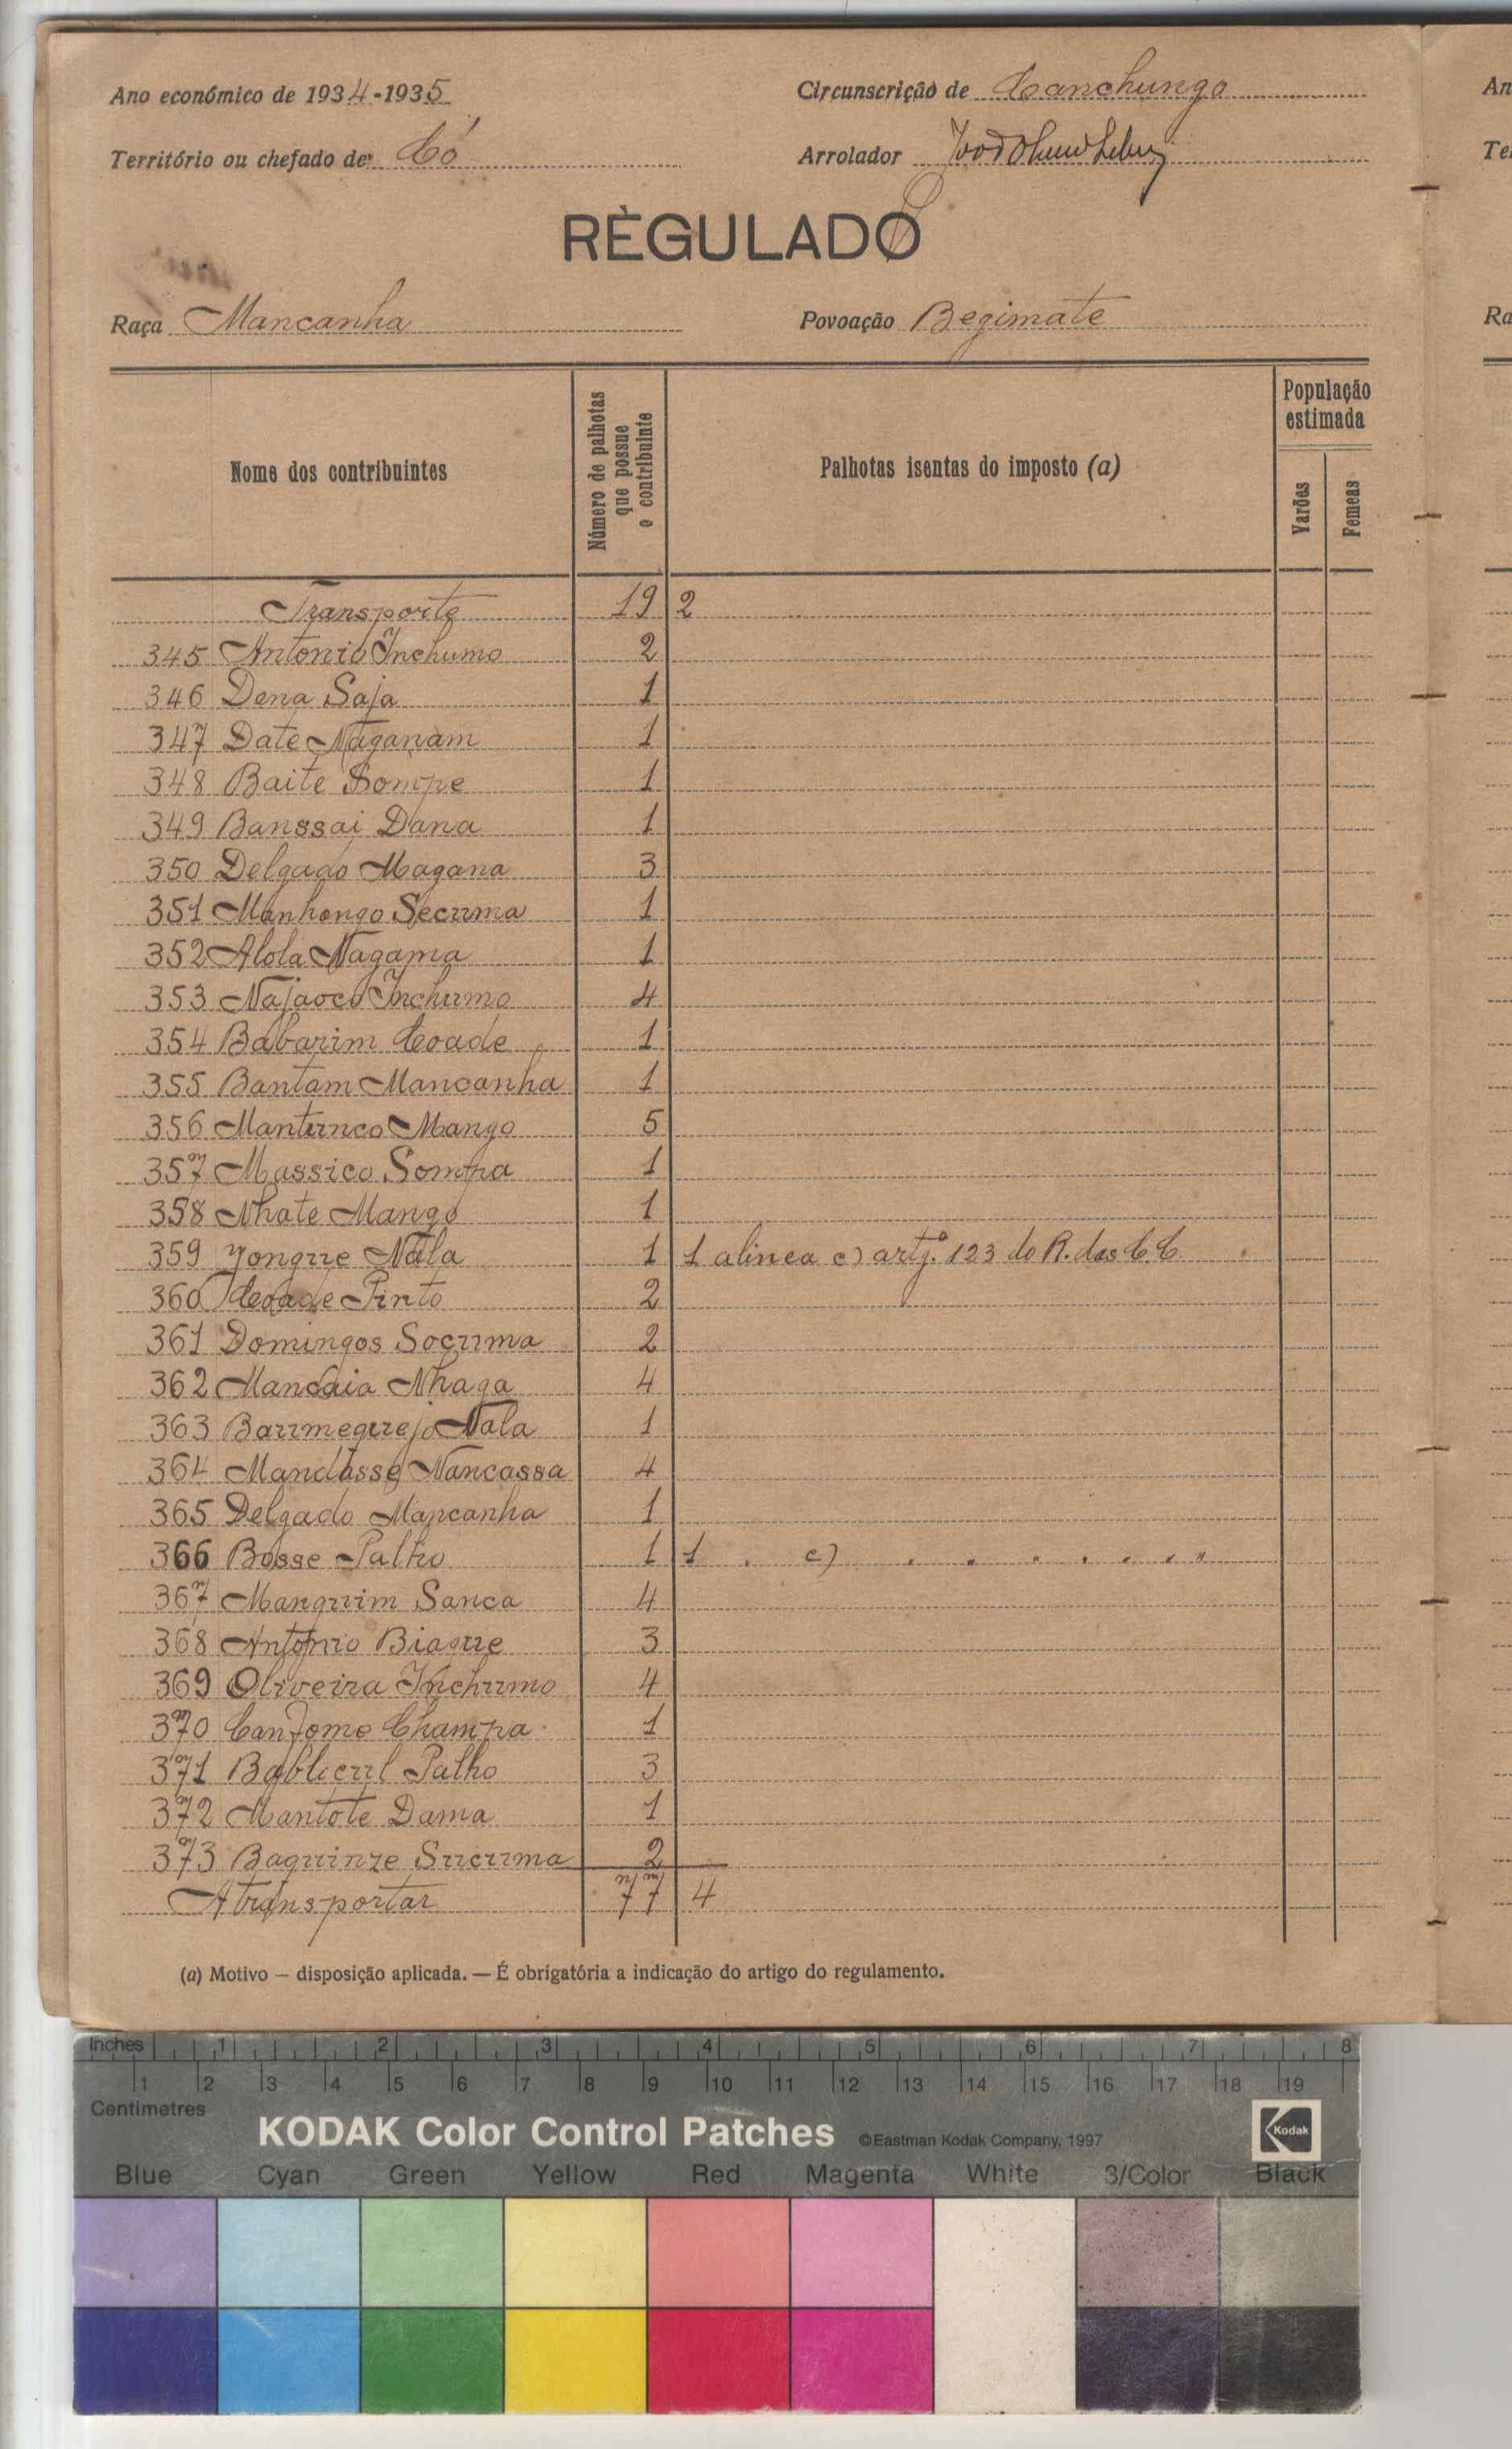 Ano económico de 1934-1935
Circunscrição de Canchungo
Território ou chefado de Có
Arrolador
RÈGULADO
Raça Mancanha
Povoação Begimate
Nome dos contribuintes
Número de palhotas que possue o contribuinte
Palhotas isentas do imposto (a)
População estimada
Varões
Femeas
Transporte 19 2
345 Antonio Inchumo 2
346 Dena Saja 1
347 Date Naganam 1
348 Baite Sompe 1
349 Banssai Dana 1
350 Delgado Magana 3
351 Manhongo Secuma 1
352 Alola Nagama 1
353 Najaoco Inchumo 4
354 Babarim Coade 1
355 Bantam Mancanha 1
356 Mantunco Mango 5
357 Massico Sompa 1
358 Nhate Mango 1
359 Yongue Nala 1 1 alinea c) artg.º 123 do R. das C C
360 Coade Pinto 2
361 Domingos Socuma 2
362 Mancaia Nhaga 4
363 Baumequejo Nala 1
364 Mandasse Nancassa 4
365 Delgado Mancanha 1
366 Bosse Palho 1 1 . c) . . . . . . "
367 Manquim Sanca 4
368 Antonio Biague 3
369 Oliveira Inchumo 4
370 Canfome Champa 1
371 Bablicul Palho 3
372 Mantote Dama 1
373 Baquinze Sucuma 2
A transportar 77 4
(a) Motivo — disposição aplicada. — É obrigatória a indicação do artigo do regulamento.
An
Te
Ra
Inches 1 2 3 4 5 6 7 8
1 2 3 4 5 6 7 8 9 10 11 12 13 14 15 16 17 18 19
Centimetres
KODAK Color Control Patches ©Eastman Kodak Company, 1997 Kodak
Blue Cyan Green Yellow Red Magenta White 3/Color Black